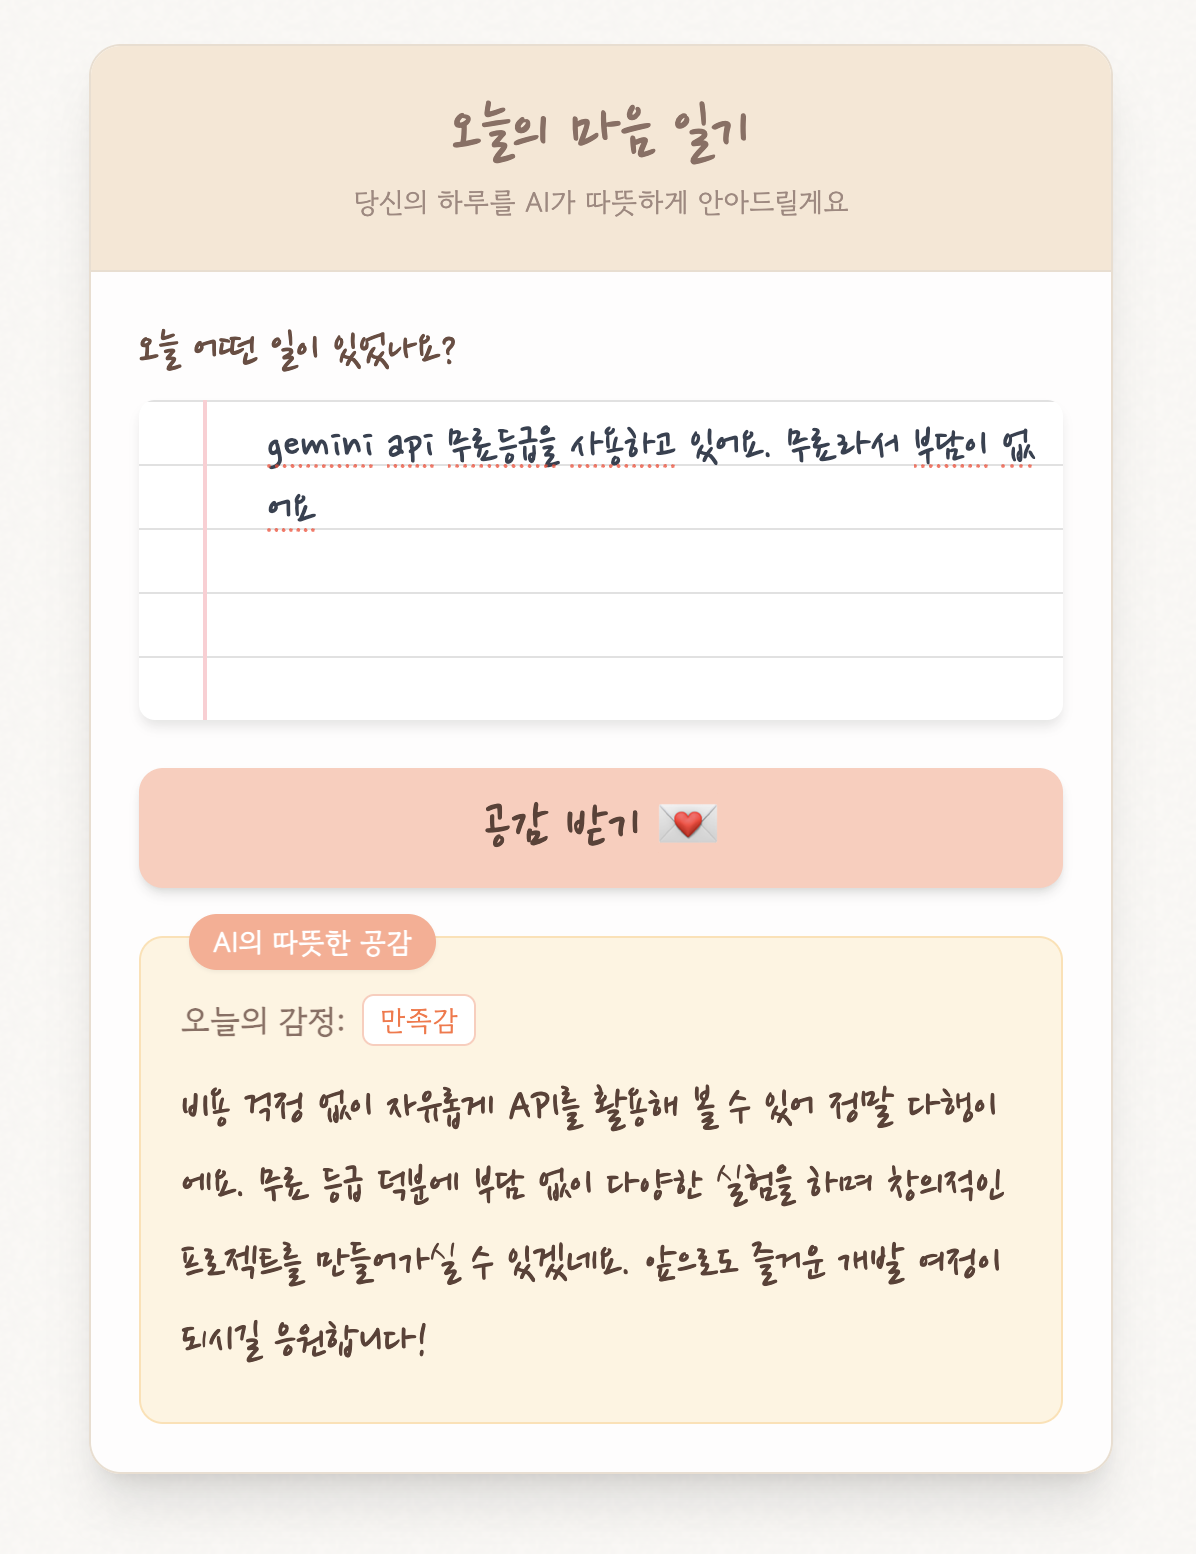 오늘의 마음 일기
당신의 하루를 AI가 따뜻하게 안아드릴게요
오늘 어떤 일이 있었나요?
gemini api 무료등급을 사용하고 있어요. 무료라서 부담이 없
어요
공감 받기 💌
AI의 따뜻한 공감
오늘의 감정: 만족감
비용 걱정 없이 자유롭게 API를 활용해 볼 수 있어 정말 다행이
에요. 무료 등급 덕분에 부담 없이 다양한 실험을 하며 창의적인
프로젝트를 만들어가실 수 있겠네요. 앞으로도 즐거운 개발 여정이
되시길 응원합니다!